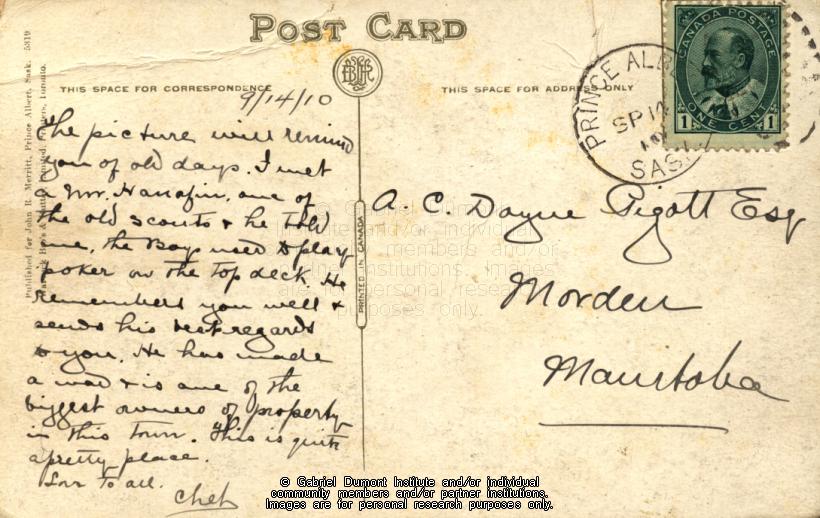 POST CARD
THIS SPACE FOR CORRESPONDENCE
THIS SPACE FOR ADDRESS ONLY
9/14/10
The picture will remind
you of old days. I met
a Mr. Hanafin, one of
the old scouts & he told
me, the Boys used to play
poker on the top deck. He
remembers you well &
sends his best regards
to you. He has made
a wad & is one of the
biggest owners of property
in this town. This is quite
a pretty place.
Love to all. Chet
A. C. Doyne Pigott Esq
Morden
Manitoba
PRINTED IN CANADA
Published for John R. Merritt, Prince Albert, Sask. 5819
Toronto.
CANADA POSTAGE
1 ONE CENT 1
PRINCE ALB
SP 14
10
SASK
© Gabriel Dumont Institute and/or individual
community members and/or partner institutions.
Images are for personal research purposes only.